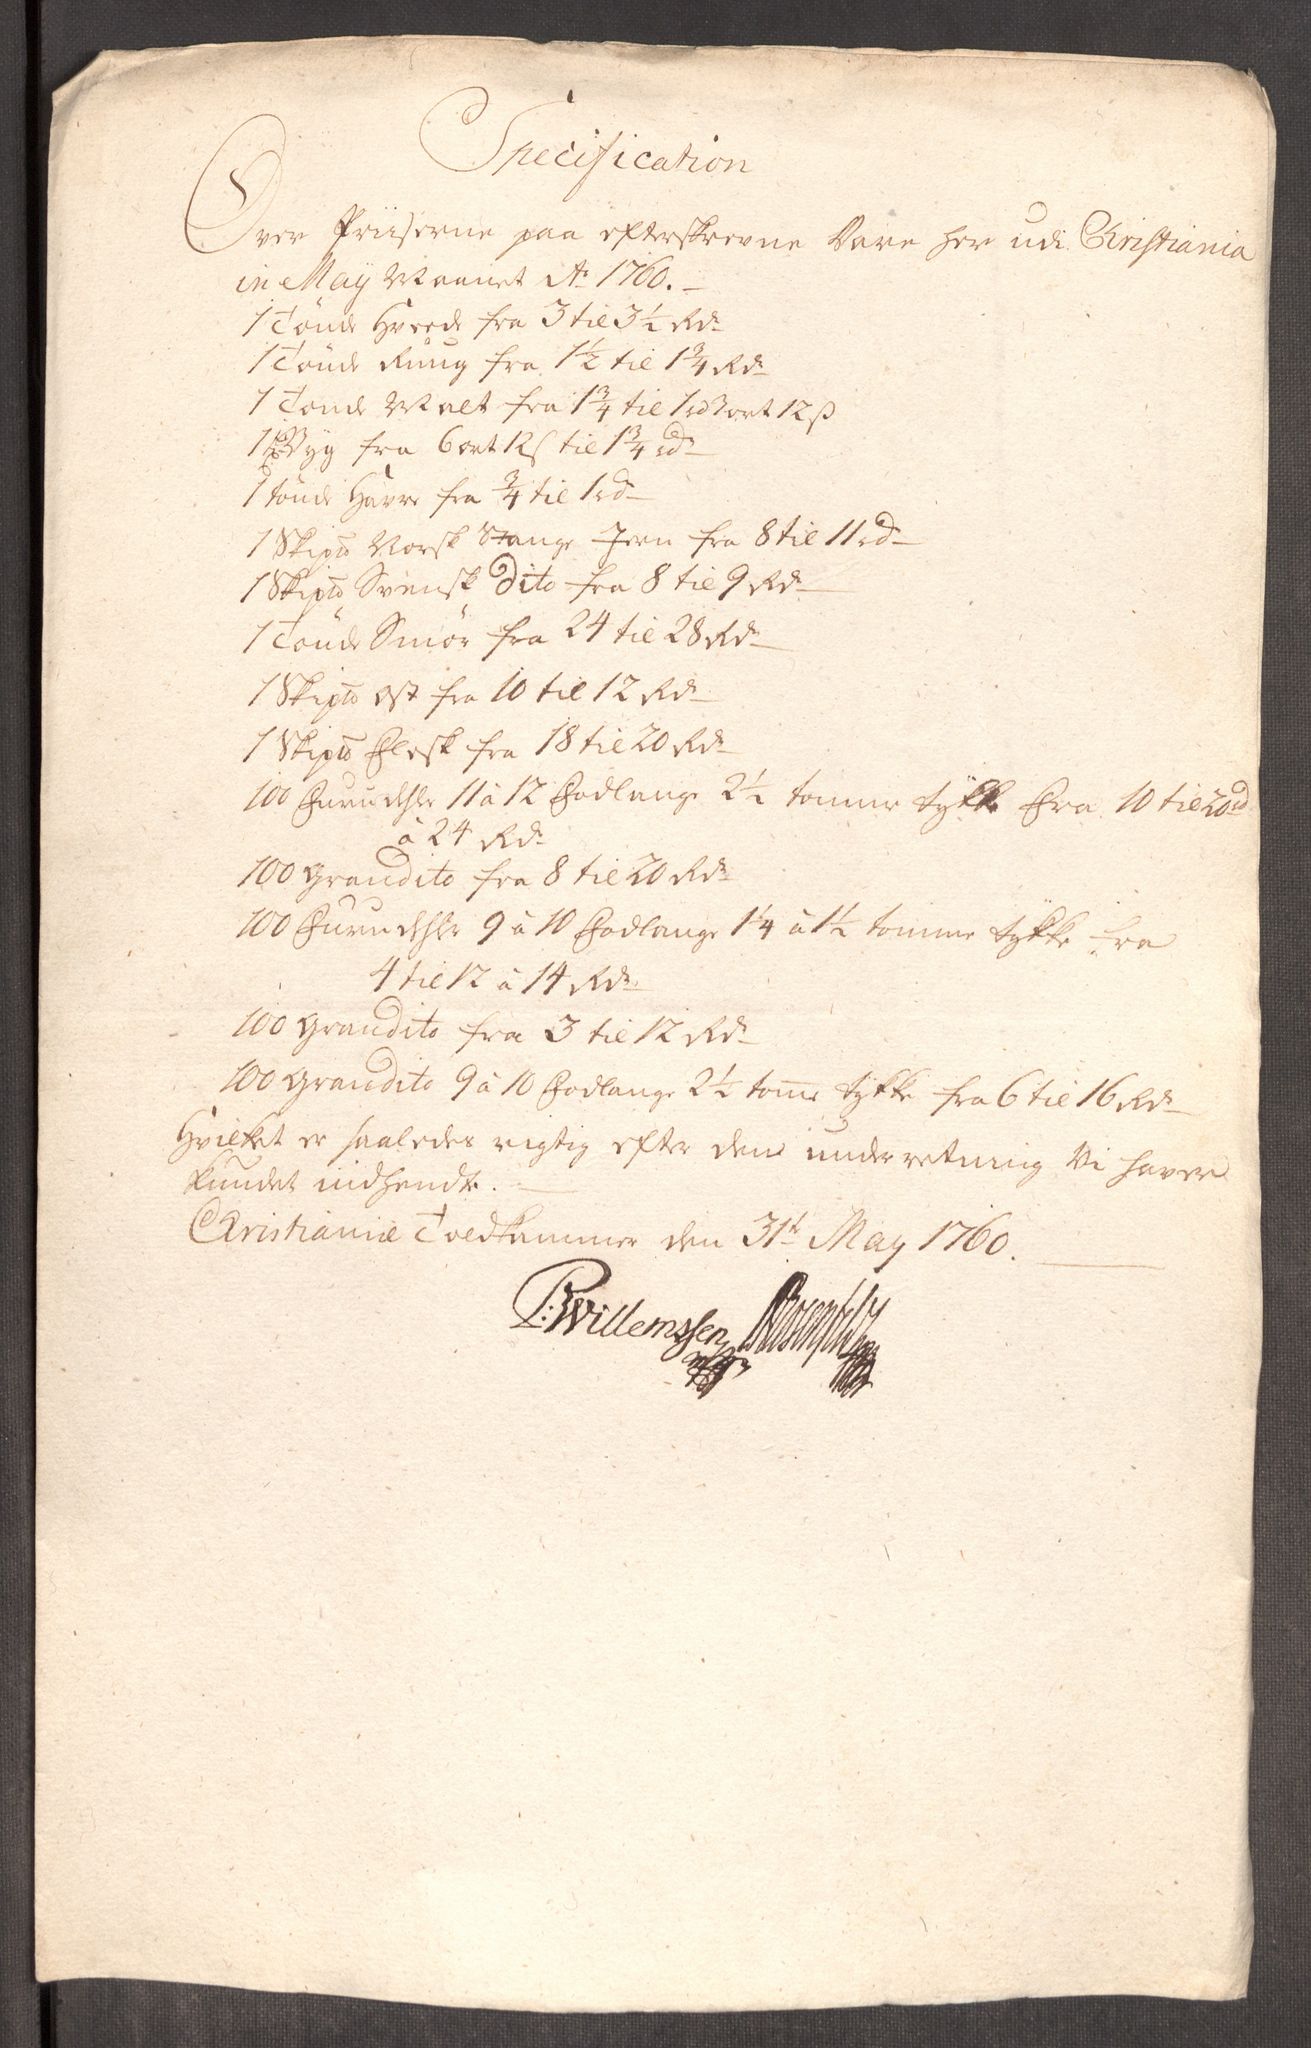 Specification
Over Priiserne paa efterskrevne Vare her udi Christiania
in May Maanet Ao 1760. –
1 Tönde Hvede fra 3 til 3½ Rdr
1 Tönde Rüug fra 1½ til 1¾ Rdr
1 Tönde Malt fra 1¾ til 1 rd 3 ort 12 ß
1 Byg fra 6 ort 12 ß til 1¾ rdr
1 tönde Havre fra ¾ til 1 rdr
1 Skip℔ Norsk Stange Jern fra 8 til 11 rdr
1 Skip℔ Svensk dito fra 8 til 9 Rdr
1 Tönde Smör fra 24 til 28 Rdr
1 Skip℔ Ost fra 10 til 12 Rdr
1 Skip℔ Flesk fra 18 til 20 Rdr
100 Furu dehler 11 à 12 Fodlange 2½ tomme tykke fra 10 til 20 rd
à 24 Rdr
100 Gran dito fra 8 til 20 Rdr
100 Furu dehler 9 à 10 Fodlange 1¼ à 1½ tomme tykke fra
4 til 12 à 14 Rdr
100 Gran dito fra 3 til 12 Rdr
100 Gran dito 9 à 10 Fodlange 2½ tom̄e tykke fra 6 til 16 Rdr
Hvilket er saaledes rigtig efter den underretning Vi haver
kundet indhendte. –
Christianiæ Toldkammer den 31t May 1760.
P: Willemssen